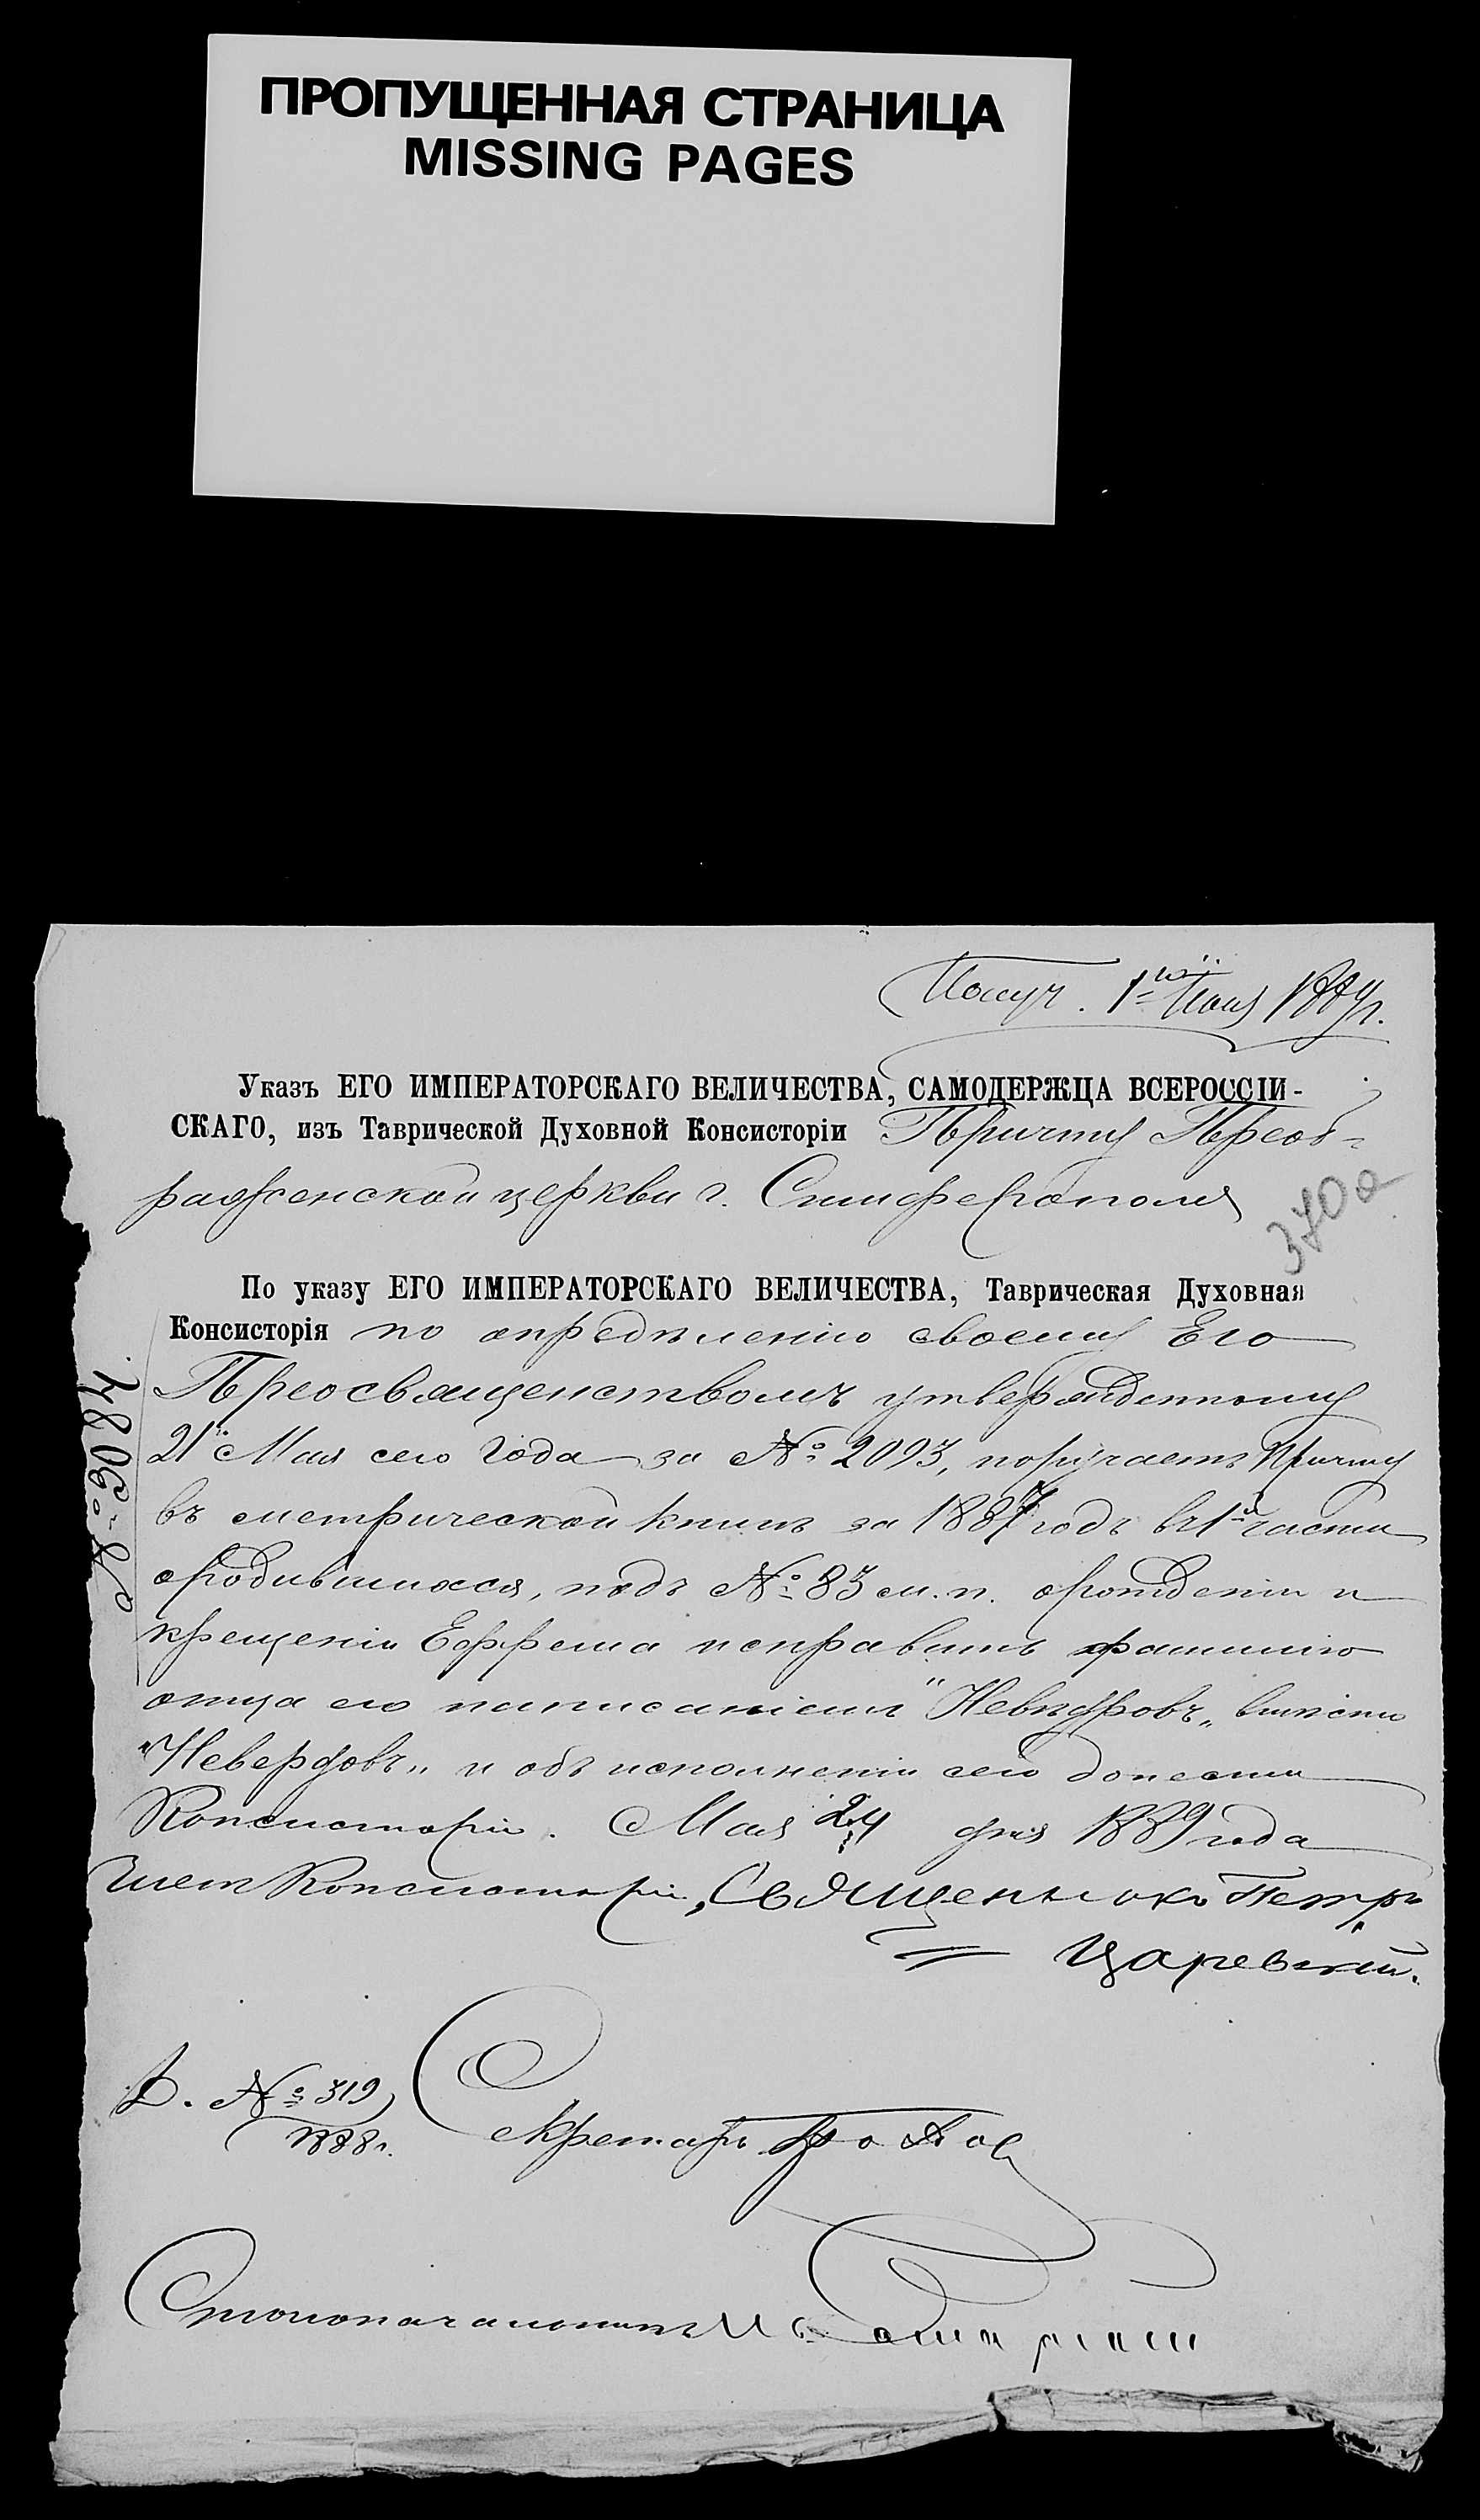 ПРОПУЩЕННАЯ СТРАНИЦА
MISSING PAGES
Получ. 1го Іюня 1889 г.
Указъ ЕГО ИМПЕРАТОРСКАГО ВЕЛИЧЕСТВА, САМОДЕРЖЦА ВСЕРОССІИ-
СКАГО, изъ Таврической Духовной Консисторіи Причту Преоб-
раженской церкви г. Симферополя
370а
По указу ЕГО ИМПЕРАТОРСКАГО ВЕЛИЧЕСТВА, Таврическая Духовная
Консисторія по опредѣленію своему Его
Преосвященствомъ утвержденному
21 Мая сего года за № 2093, поручаетъ Причту
въ метрической книгѣ за 1887 годъ въ 1й части
о родившихся, подъ № 83 м. п. о рожденіи и
крещеніи Ефрема исправить фамилію
отца его написаніемъ "Невѣдровъ„ вмѣсто
"Невердовъ„ и объ исполненіи сего донести
Консисторіи. Мая 24 дня 1889 года
№ 3084.
Членъ Консисторіи, Священникъ Петръ
Царевскій.
№ 319
1888 г.
Секретарь
Столоначальникъ